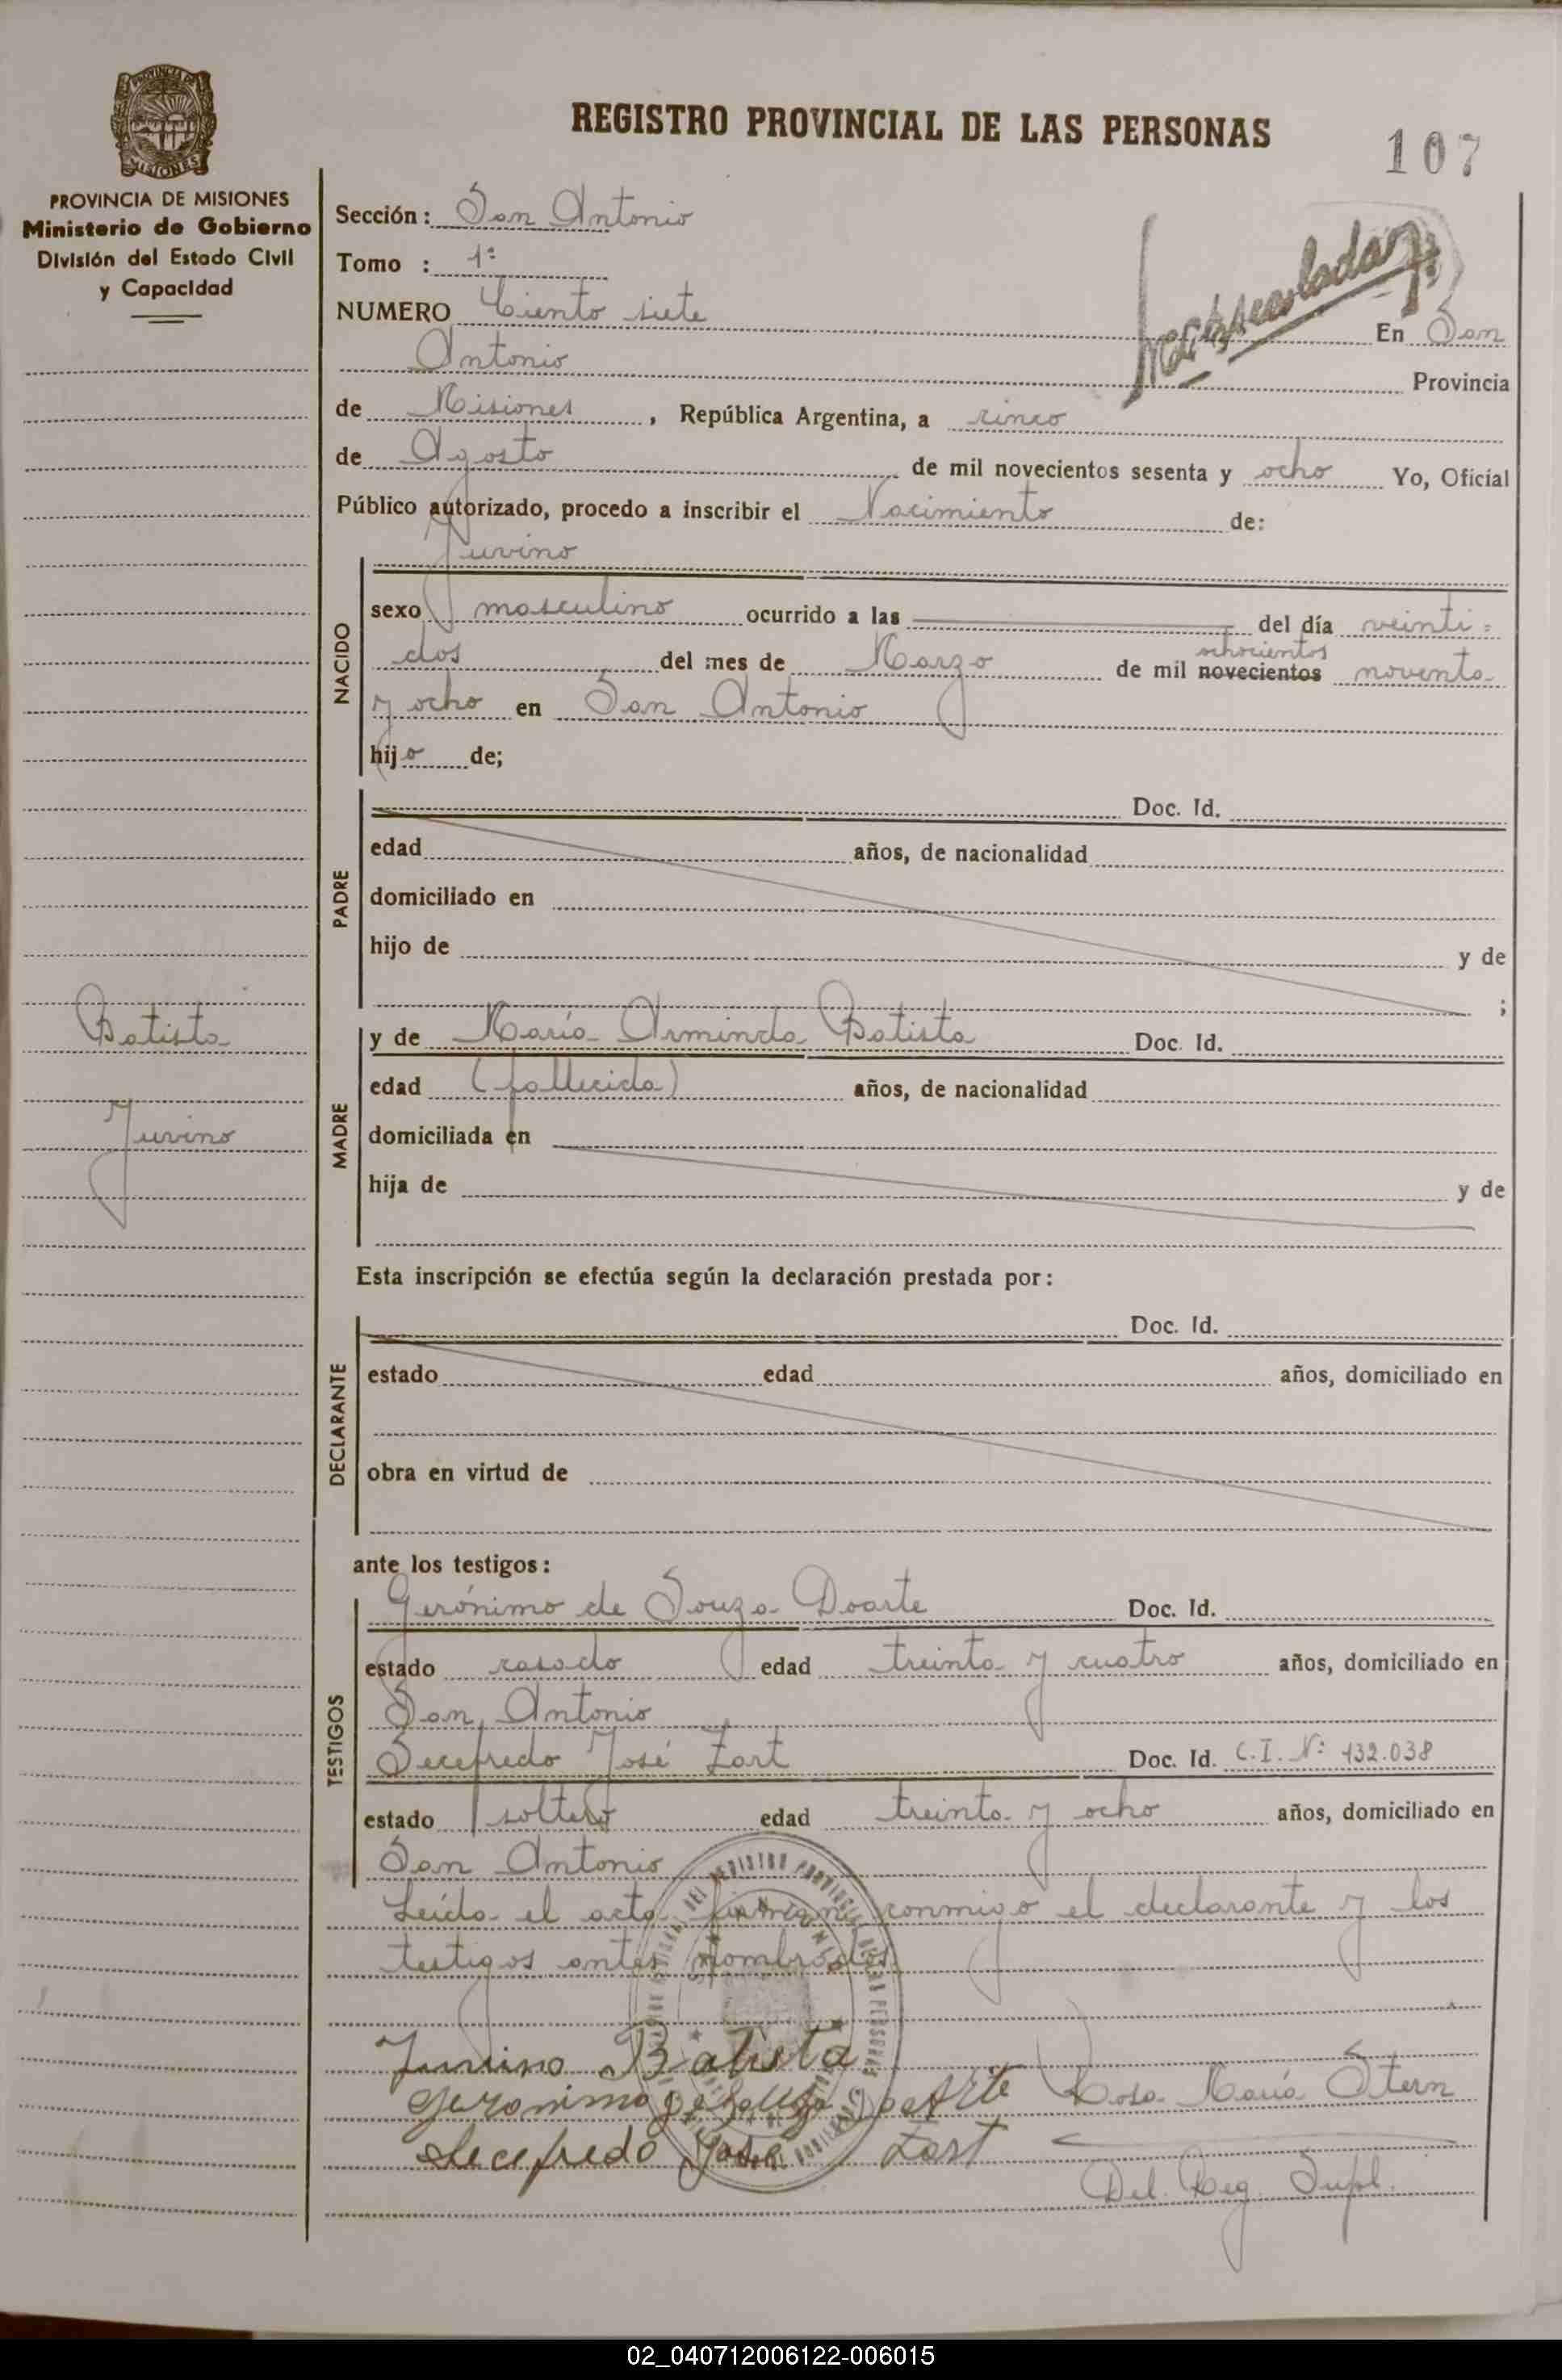 PROVINCIA DE MISIONES
Ministerio de Gobierno
División del Estado Civil
y Capacidad
REGISTRO PROVINCIAL DE LAS PERSONAS
107
Sección: San Antonio
Tomo : 1º
NUMERO Ciento siete En San
Antonio Provincia
de Misiones, República Argentina, a cinco
de Agosto de mil novecientos sesenta y ocho Yo, Oficial
Público autorizado, procedo a inscribir el Nacimiento de:
NACIDO
Juvino
sexo masculino ocurrido a las del día veinti=
ochocientos
dos del mes de Marzo de mil novecientos noventa
y ocho en San Antonio
hijo de;
PADRE
Doc. Id.
edad años, de nacionalidad
domiciliado en
hijo de y de
;
Batista
Juvino
MADRE
y de María Arminda Batista Doc. Id.
edad (fallecida) años, de nacionalidad
domiciliada en
hija de y de
Esta inscripción se efectúa según la declaración prestada por:
DECLARANTE
Doc. Id.
estado edad años, domiciliado en
obra en virtud de
ante los testigos:
TESTIGOS
Gerónimo de Souza Doarte Doc. Id.
estado casado edad treinta y cuatro años, domiciliado en
San Antonio
Secefredo José Zart Doc. Id. C.I. Nº 132.038
estado soltero edad treinta y ocho años, domiciliado en
San Antonio
Leída el acta firman conmigo el declarante y los
testigos antes nombrados
Juvino Batista
Geronimo de Souza Doarte Rosa María Stern
Secefredo José Zart
Del. Reg. Supl.
02_040712006122-006015